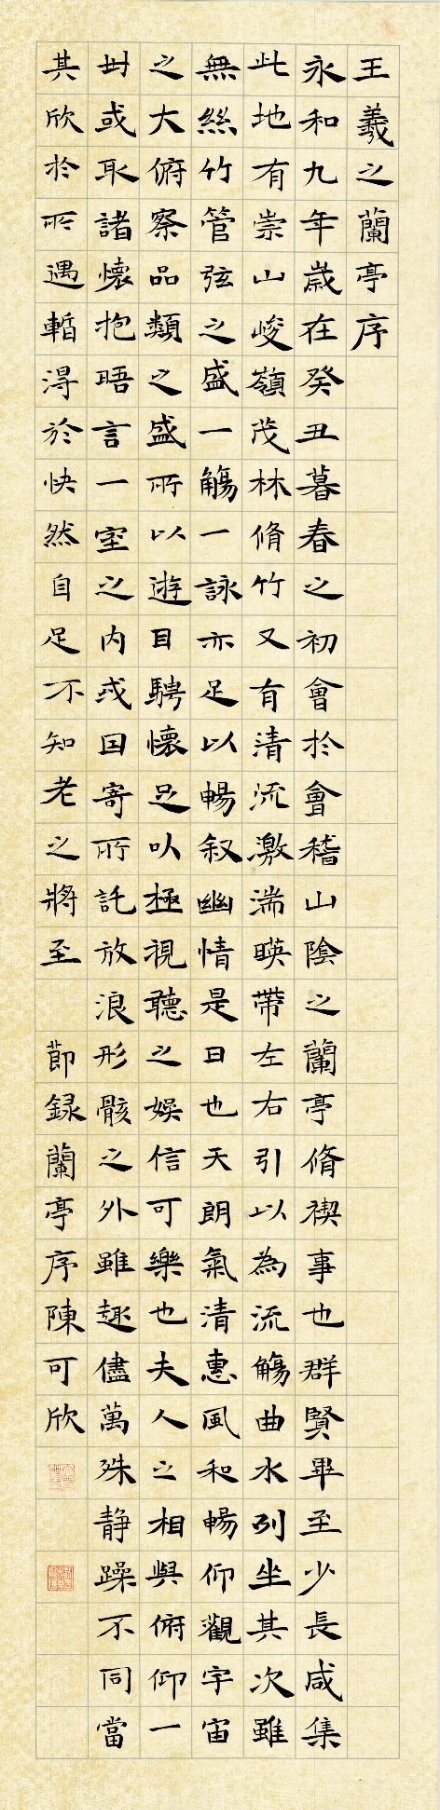 王羲之蘭亭序
永和九年歲在癸丑暮春之初會於會稽山陰之蘭亭脩禊事也群賢畢至少長咸集
此地有崇山峻嶺茂林脩竹又有清流激湍暎帶左右引以為流觴曲水列坐其次雖
無絲竹管弦之盛一觴一詠亦足以暢叙幽情是日也天朗氣清惠風和暢仰觀宇宙
之大俯察品類之盛所以遊目騁懷足以極視聽之娛信可樂也夫人之相與俯仰一
世或取諸懷抱晤言一室之內或因寄所託放浪形骸之外雖趣儘萬殊静躁不同當
其欣於所遇暫得於快然自足不知老之將至 節録蘭亭序陳可欣